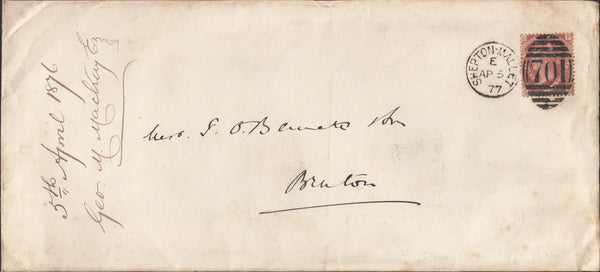 5th April 1876
Geo. M. Mackay Esq
SHEPTON-MALLET
E
AP 5
77
701
Messrs. J. O. Bennett & Son
Bruton